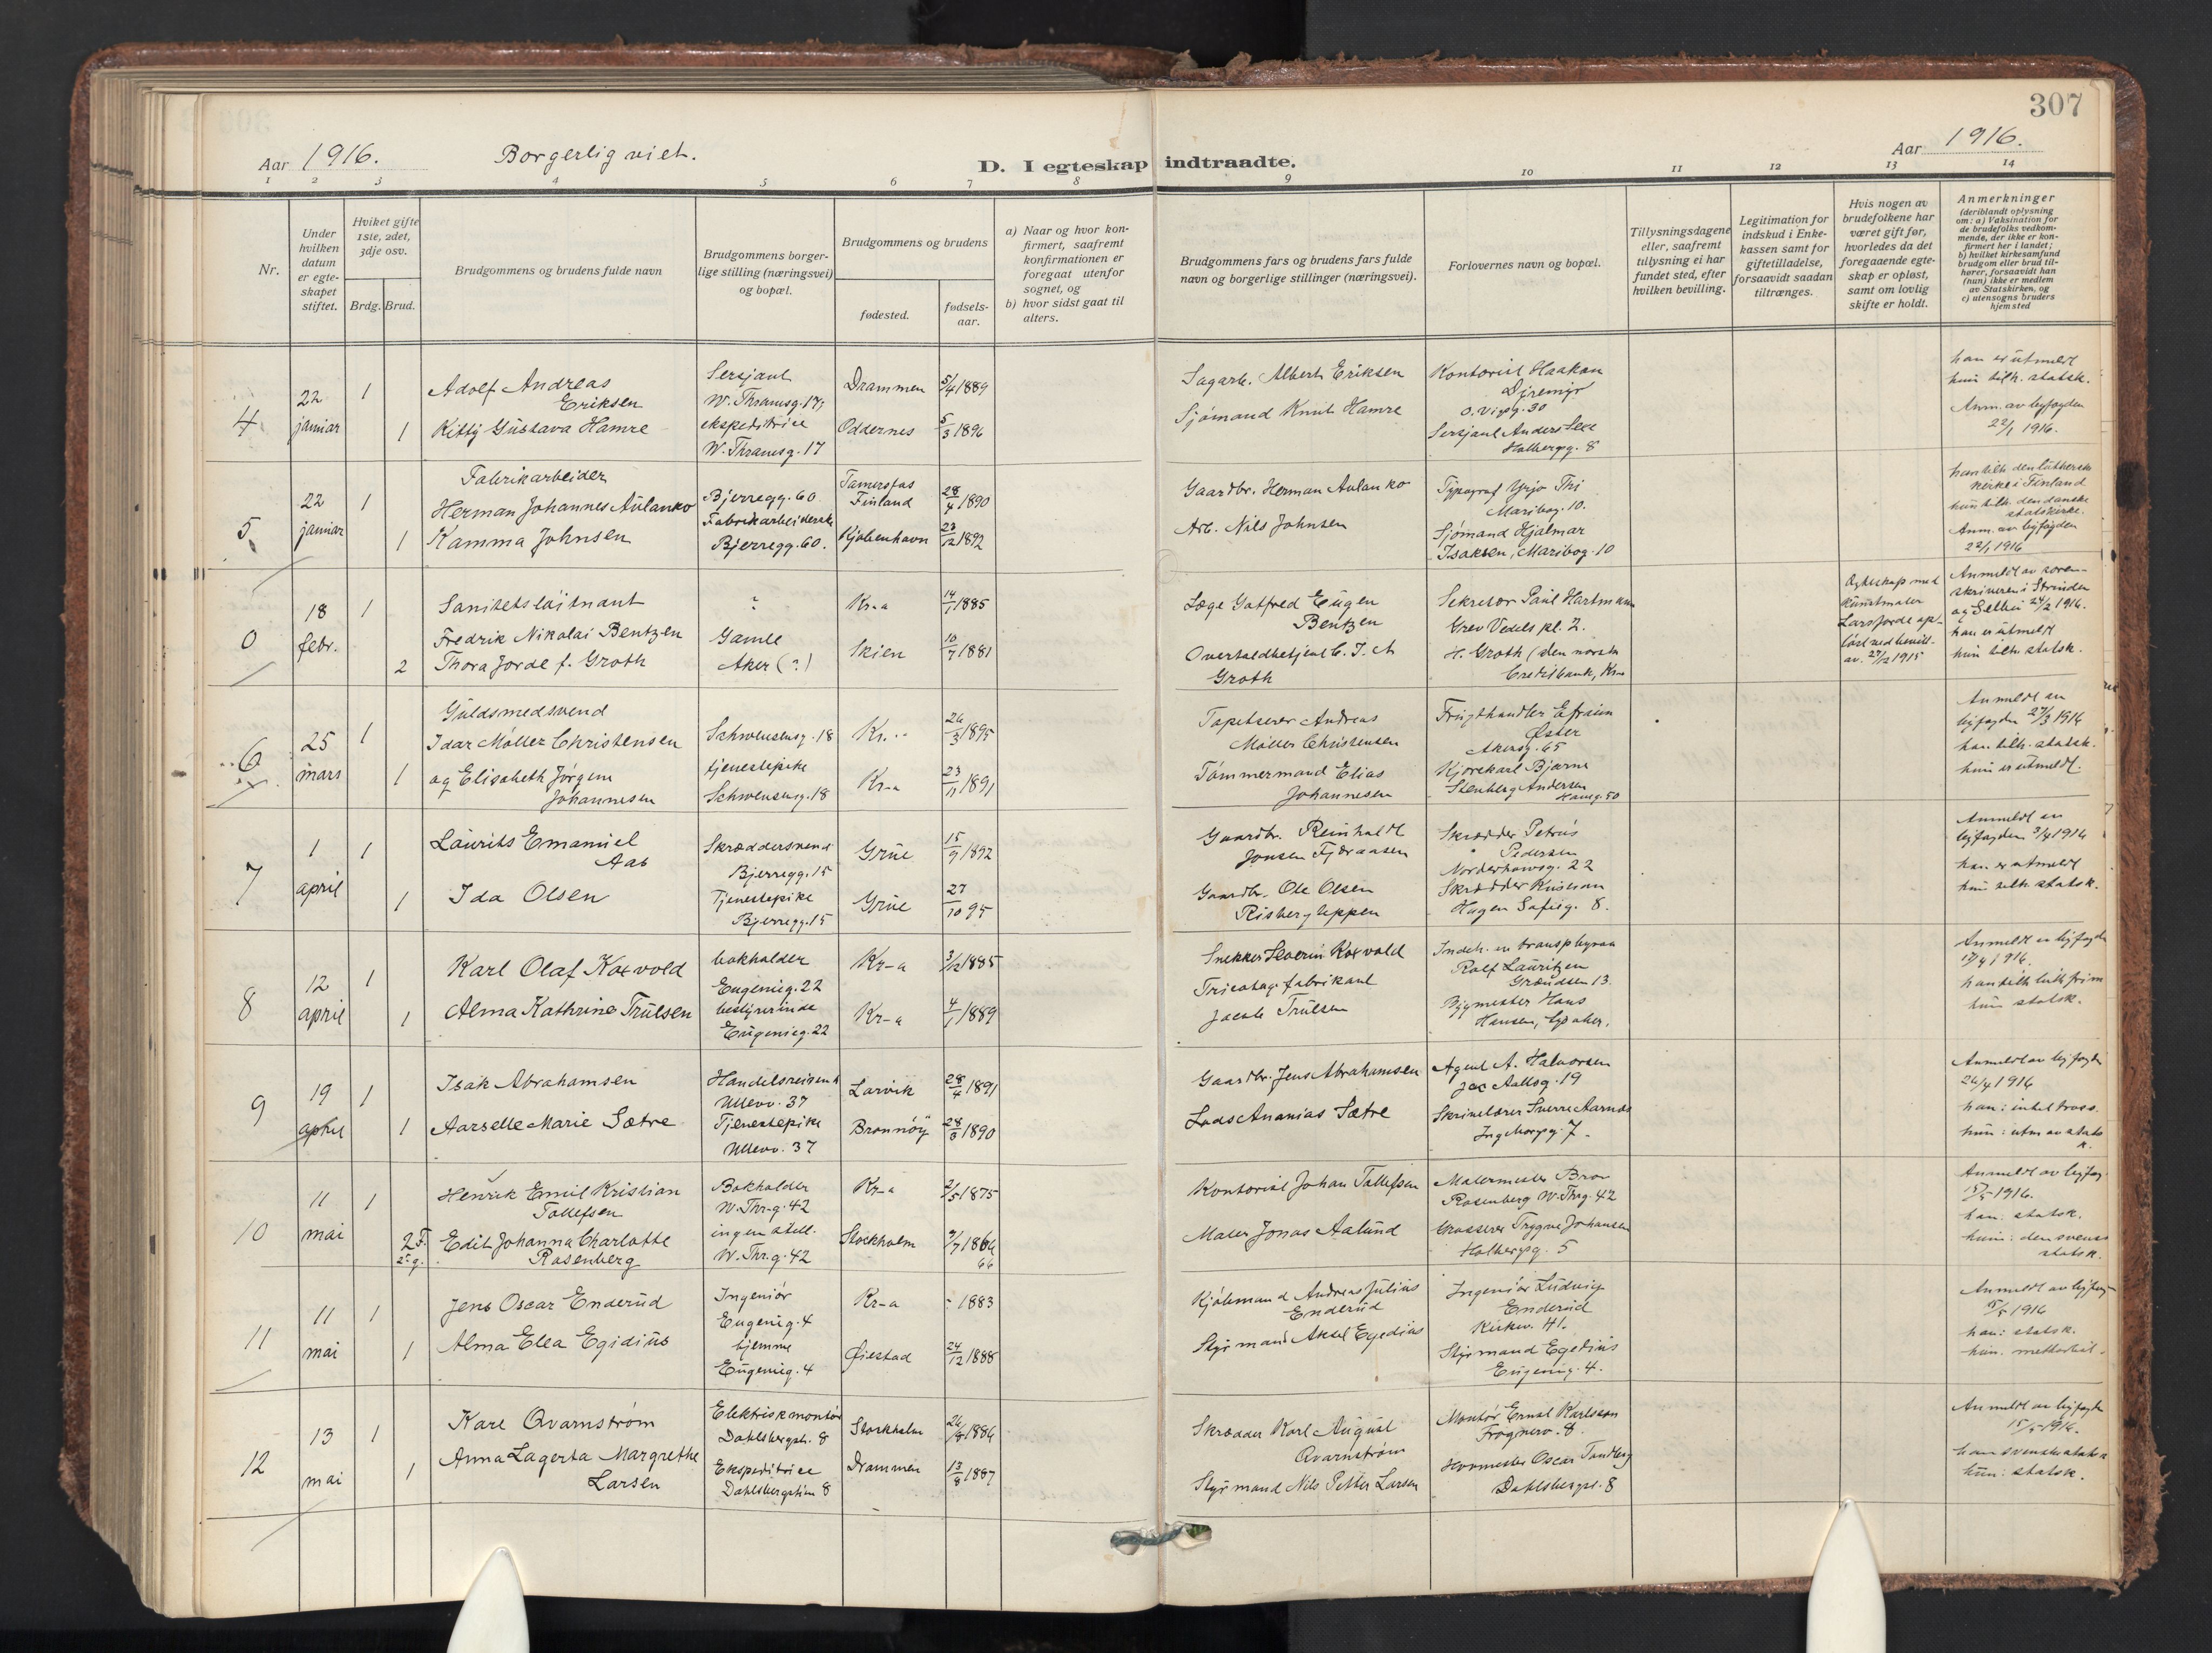 307
Aar 1916.
Borgerlig viet.
D. I egteskap indtraadte.
Aar 1916.
1 2 3 4 5 6 7 8 9 10 11 12 13 14
Nr.
Under hvilken datum er egteskapet stiftet.
Hviket gifte 1ste, 2det, 3dje osv.
Brdg. Brud.
Brudgommens og brudens fulde navn
Brudgommens borgerlige stilling (næringsvei) og bopæl.
Brudgommens og brudens
fødested.
fødselsaar.
a) Naar og hvor konfirmert, saafremt konfirmationen er foregaat utenfor sognet, og
b) hvor sidst gaat til alters.
Brudgommens fars og brudens fars fulde navn og borgerlige stillinger (næringsvei).
Forlovernes navn og bopæl.
Tillysningsdagene eller, saafremt tillysning ei har fundet sted, efter hvilken bevilling.
Legitimation for indskud i Enkekassen samt for giftetilladelse, forsaavidt saadan tiltrænges.
Hvis nogen av brudefolkene har været gift før, hvorledes da det foregaaende egteskap er opløst, samt om lovlig skifte er holdt.
Anmerkninger
(deriblandt oplysning om: a) Vaksination for de brudefolks vedkommende, der ikke er konfirmert her i landet; b) hvilket kirkesamfund brudgom eller brud tilhører, forsaavidt han (hun) ikke er medlem av Statskirken, og c) utensogns bruders hjemsted
4
22 januar
1
Adolf Andreas
Eriksen
Sersjant
W. Thranesg. 17,
Drammen
5/4 1889
1
Kitty Gustava Hamre
ekspeditrice
W. Thranesg. 17
Oddernes
5/3 1896
Sagarb. Albert Eriksen
Sjømand Knut Hamre
Kontorist Haakan
O. Voigtsg. 30
Sersjant Anders
Holbergsg. 8
han er utmeldt
hun tilh. statsk.
Anm. av byfogden
22/1 1916.
5
22 januar
1
Fabrikarbeider
Herman Johannes Aulanko
Bjerregg. 60
Tamersfas
Finland
28/4 1890
1
Kamma Johnsen
Fabrikarbeiderske
Bjerregg. 60.
Kjøbenhavn
23/12 1892
Gaardbr. Herman Aulanko
Arb. Nils Johnsen
Typograf Yrjo
Maribog. 10.
Sjømand Hjalmar
Isaksen, Maribog. 10
han tilh. den lutherske
kirke i Finland
hun tilh. den danske
statskirke.
Anm. av byfogden
22/1 1916
0
18 febr.
1
Sanitetsløitnant
Fredrik Nikolai Bentzen
?
Kr-a
14/1 1885
2
Thora Jorde f. Groth
Gamle
Aker (?)
Skien
10/7 1881
Læge Gotfred Eugen
Bentzen
Overtoldbetjent C. J. A
Groth
Sekretær Paul Hartmann
Grev Vedels pl. 2.
H. Groth (den norske
Creditbank, Kra
Egteskap med
kunstmaler
Lars Jorde op-
løst ved bevill.
av. 27/12 1915
Anmeldt av soren-
skriveren i Strinden
og Selbu 24/2 1916.
han er utmeldt
hun tilh. statsk.
6
25 mars
1
Guldsmedsvend
Idar Møller Christensen
Schwensensg. 18
Kr.-
26/3 1895
1
og Elisabeth Jørgine
Johannesen
tjenestepike
Schwensensg. 18
Kr-a
23/11 1891
Tapetserer Andreas
Møller Christensen
Tømmermand Elias
Johannesen
Frugthandler Efraim
Øster
Akersg. 65
Kjørekarl Bjarne
Stenberg Andersen
Hausg. 50
Anmeldt av
byfogden 27/3 1916
han tilh. statsk.
hun er utmeldt.
7
1 april
1
Laurits Emanuel
Aas
Skræddersvend
Bjerregg. 15
Grue
15/9 1892
1
Ida Olsen
Tjenestepike
Bjerregg. 15
Grue
27/10 95
Gaardbr. Reinholdt
Jonsen
Gaardbr. Ole Olsen
Risbergleppen
Skrædder Petrus
Pedersen
Norderhovsg. 22
Skrædder Kristian
Hagen Sofieg. 8.
Anmeldt av
byfogden 3/4 1916
han er utmeldt
hun tilh. statsk.
8
12 april
1
Karl Olaf Koxvold
bokholder
Eugenieg. 22
Kr-a
3/12 1885
1
Alma Kathrine Trulsen
bestyrerinde
Eugenieg. 22
Kr-a
4/1 1889
Snekker Severin Koxvold
Tricotage fabrikant
Jacob Trulsen
Indeh. av transp.byraa
Rolf Lauritzen
Grændsen 13.
Bygmester Hans
Hansen,
Anmeldt av byfogden
17/4 1916.
hun statsk.
9
19 april
1
Isak Abrahamsen
Handelsreisende
Ullevv. 37
Larvik
28/4 1891
1
Aarselle Marie Sætre
Tjenestepike
Ullevv. 37
Brønnøy
28/3 1890
Gaardbr. Jens Abrahamsen
Lods Ananias Sætre
Agent A. Halvorsen
Jac Aallsg. 19
Skrivelærer Sverre Aarnes
Ingeborgsg. 7.
Anmeldt av byfogden
26/4 1916
han: intet tross.
hun: utm av stats
k.
10
11 mai
1
Henrik Emil Kristian
Tollefsen
Bokholder
W. Thr-g. 42
Kr-a
2/5 1875
2 F.
2 g.
Edit Johanna Charlotte
Rosenberg
ingen still.
W. Thr.g. 42
Stockholm
9/7 1864
66
Kontorist Johan Tollefsen
Maler Jonas Aalund
Malermester Bror
Rosenberg W. Thrg. 42
Grosserer Trygve Johansen
Holbergsg. 5
Anmeldt av byfog.
15/5 1916.
han: statsk.
hun: den svenske
statsk.
11
11 mai
1
Jens Oscar Enderud
Ingeniør
Eugenieg. 4
Kr-a
- 1883
1
Alma Elea Egidius
hjemme
Eugenieg. 4
Øiestad
24/12 1888
Kjøbmand Andreas Julius
Enderud
Styrmand Aksel Egedius
Ingeniør Ludvig
Enderud
Kirkev. 41.
Styrmand Egedius
Eugenieg. 4.
Anmeldt av byfog-
15/5 1916
han: statsk.
hun. methodist.
12
13 mai
1
Karl Qvarnstrøm
Elektriskmontør
Dahlsbergst. 8
Stockholm
26/8 1886
1
Anna Lagerta Margrethe
Larsen
Ekspeditrice
Dahlsbergstien 8
Drammen
13/8 1887
Skrædder Karl August
Qvarnstrøm
Styrmand Nils Petter Larsen
Montør Ernst Karlsson
Frognerv. 8.
Hovmester Oscar Tandberg
Dahlsbergst. 8
Anmeldt av byfogden
15/5 1916.
han svenske statsk
hun: statsk.